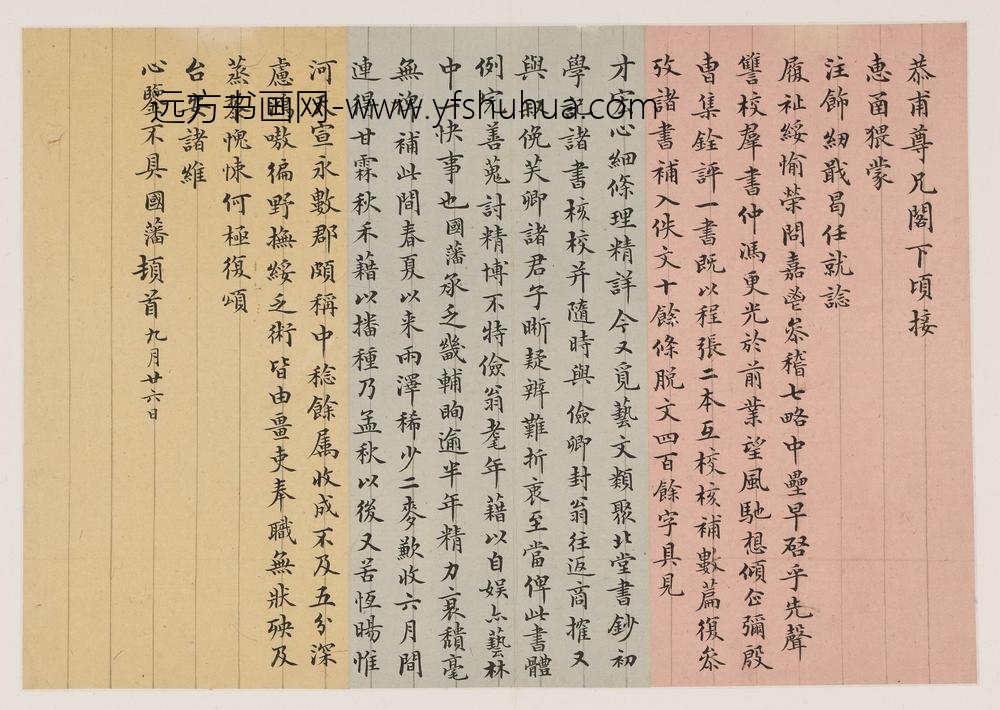 恭甫尊兄閣下頃接
惠函猥蒙
注飾紉戢曷任就諗
履祉綏愉榮問嘉鬯參稽七略中壘早啓乎先聲
讐校羣書仲馮更光於前業望風馳想傾企彌殷
曹集銓評一書既以程張二本互校核補數篇復參
攷諸書補入佚文十餘條脱文四百餘字具見
才字心細條理精詳今又覓藝文類聚北堂書鈔初
學諸書核校并隨時與儉卿封翁往返商搉又
與俛芙卿諸君子晰疑辨難折衷至當俾此書體
例完善蒐討精博不特儉翁耄年藉以自娱亦藝林
中快事也國藩承乏畿輔眴逾半年精力衰穨毫
無補此間春夏以来雨澤稀少二麥歉收六月間
連得甘霖秋禾藉以播種乃孟秋以後又苦恆暘惟
河宣永數郡頗稱中稔餘属收成不及五分深
慮鴻嗷編野撫綏乏術皆由畺吏奉職無狀殃及
蒸黎愧悚何極復頌
台諸維
心鑒不具國藩頓首九月廿六日
远方书画网-www.yfshuhua.com